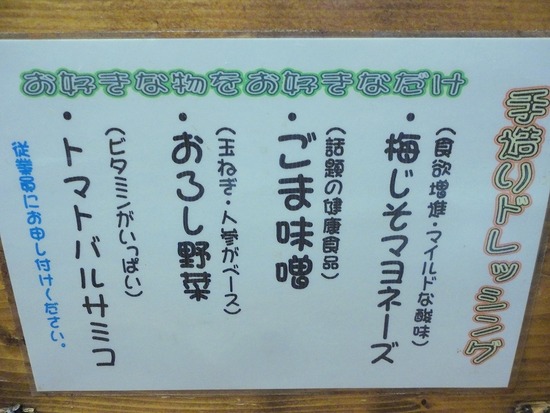 手造りドレッシング
お好きな物をお好きなだけ
・梅じそマヨネーズ
(食欲増進・マイルドな酸味)
・ごま味噌
(話題の健康食品)
・おろし野菜
(玉ねぎ・人参がベース)
・トマトバルサミコ
(ビタミンがいっぱい)
従業員にお申し付けください。